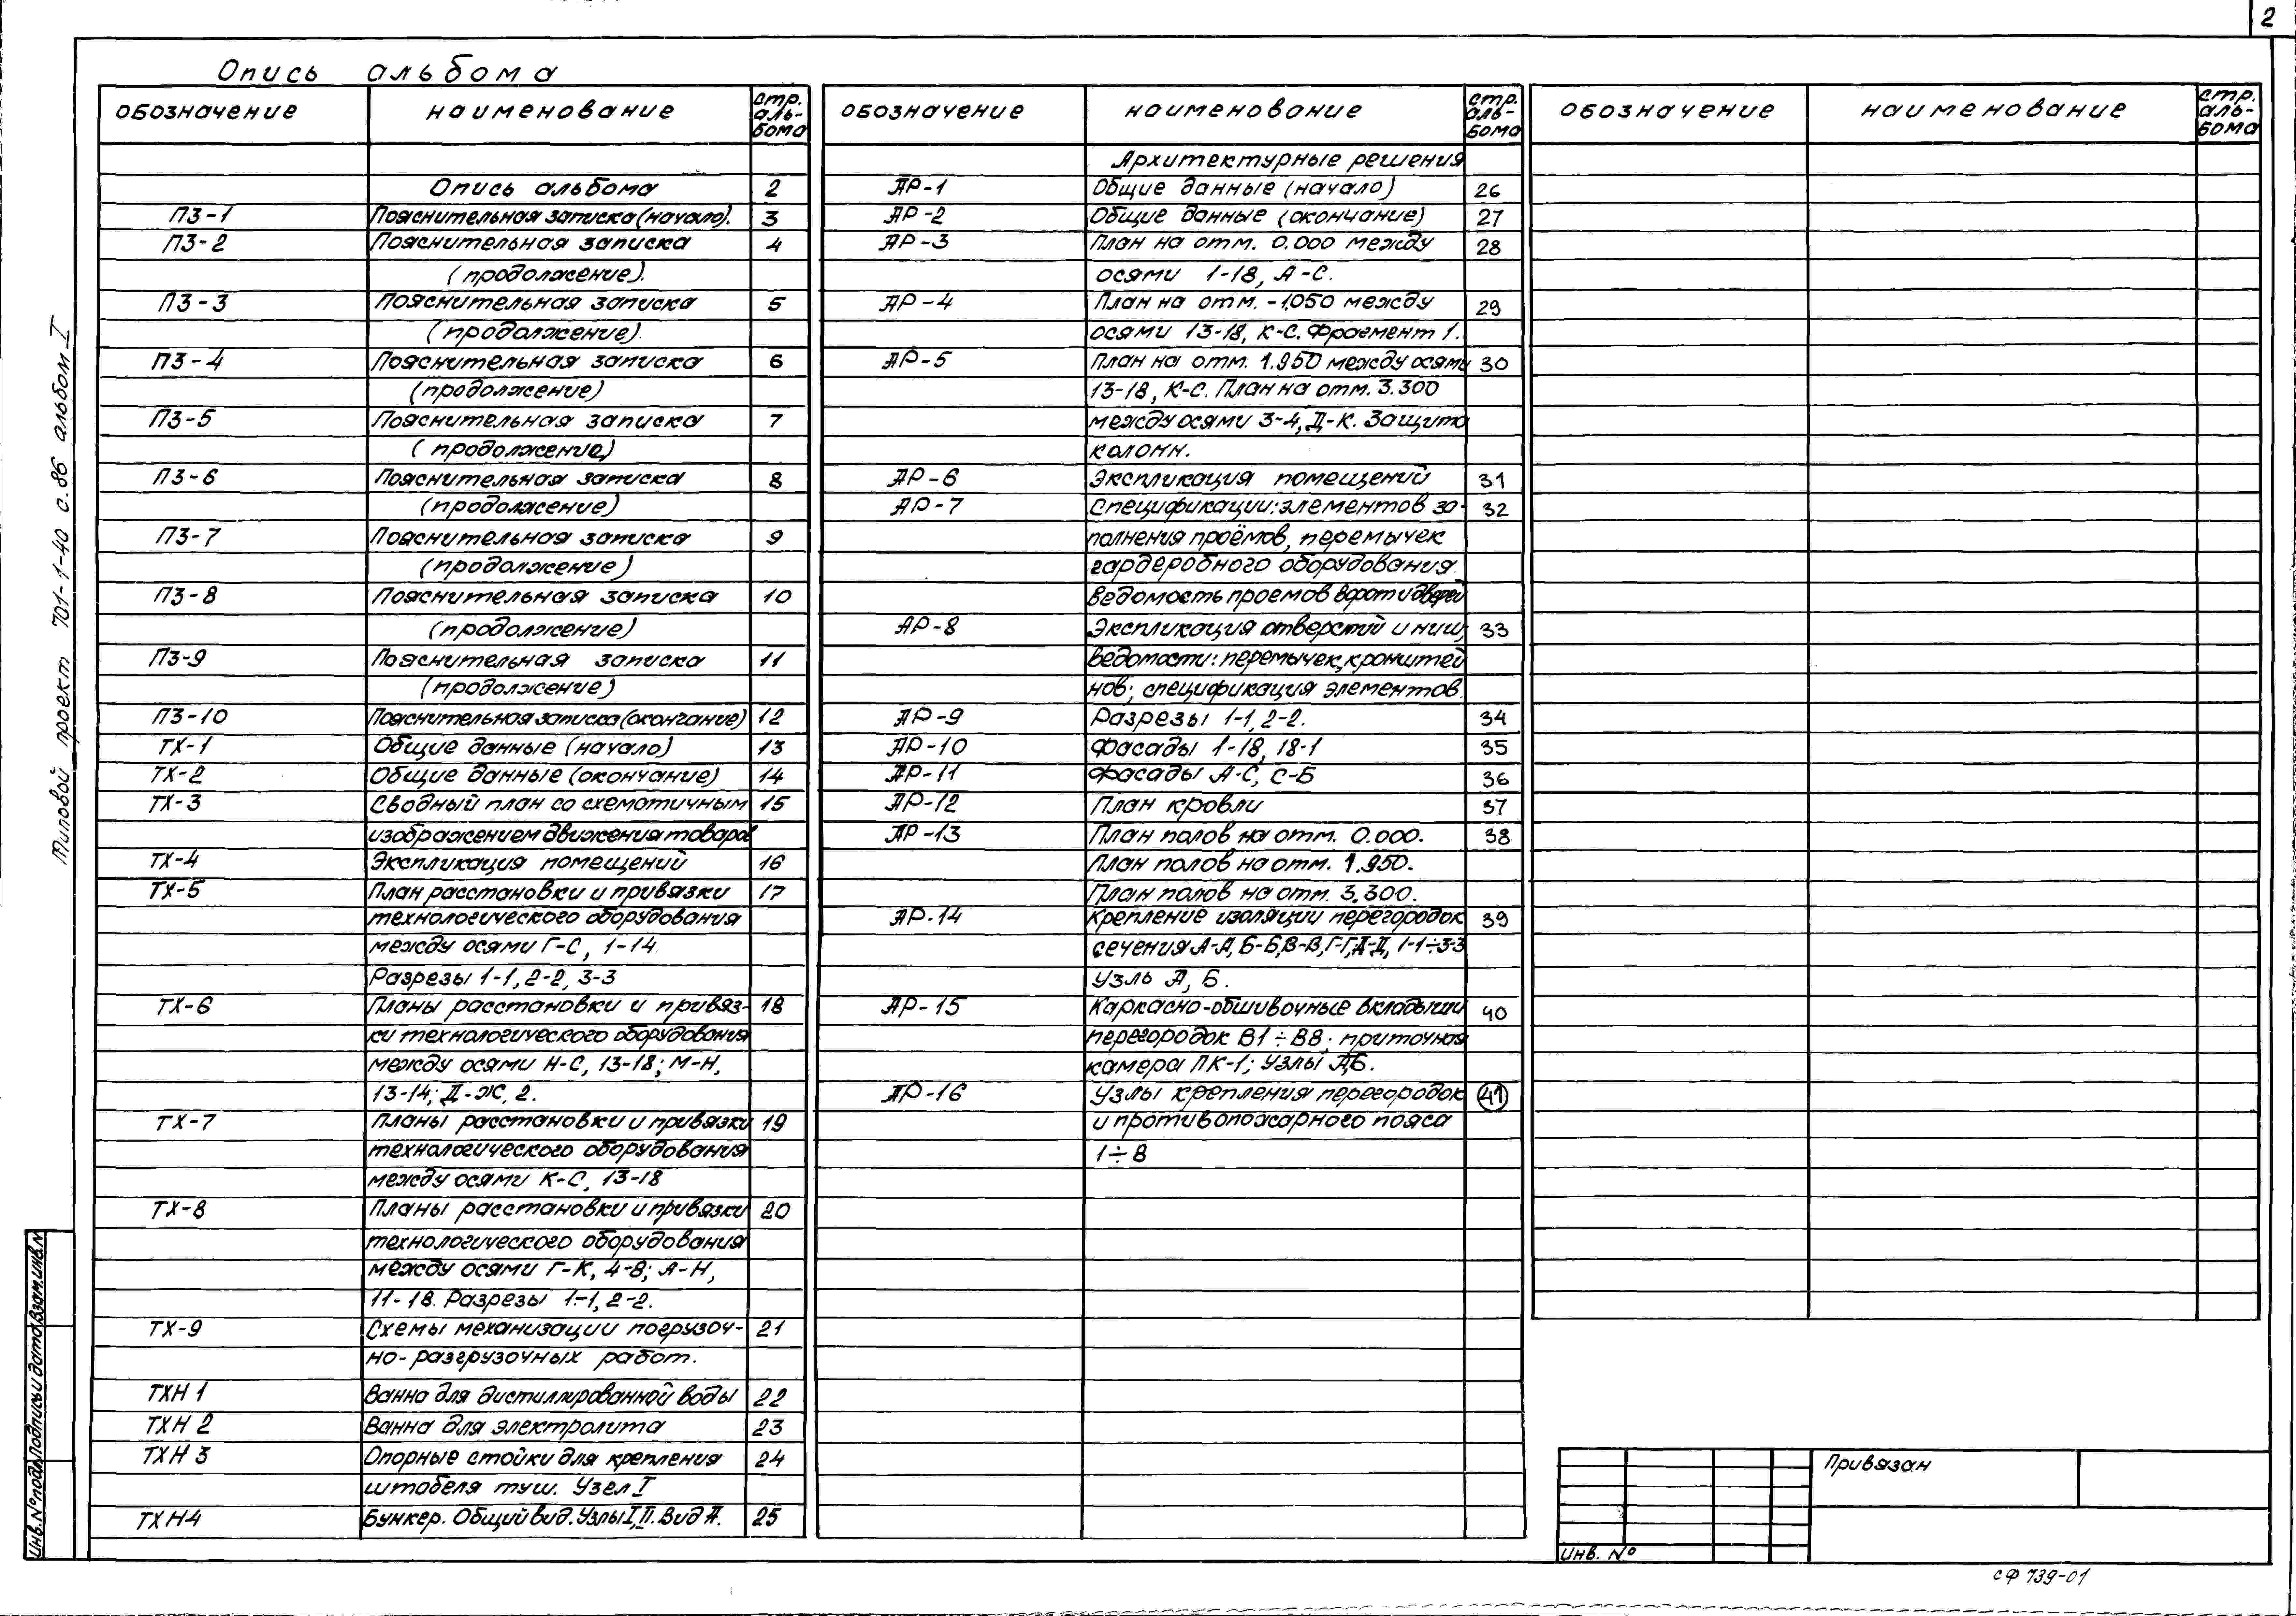 2
Опись альбома
обозначение наименование стр. аль- бома
Опись альбома 2
ПЗ-1 Пояснительная записка (начало). 3
ПЗ-2 Пояснительная записка 4
(продолжение).
ПЗ-3 Пояснительная записка 5
(продолжение).
ПЗ-4 Пояснительная записка 6
(продолжение)
ПЗ-5 Пояснительная записка 7
(продолжение)
ПЗ-6 Пояснительная записка 8
(продолжение)
ПЗ-7 Пояснительная записка 9
(продолжение)
ПЗ-8 Пояснительная записка 10
(продолжение)
ПЗ-9 Пояснительная записка 11
(продолжение)
ПЗ-10 Пояснительная записка (окончание) 12
ТХ-1 Общие данные (начало) 13
ТХ-2 Общие данные (окончание) 14
ТХ-3 Сводный план со схематичным 15
изображением движения товаров
ТХ-4 Экспликация помещений 16
ТХ-5 План расстановки и привязки 17
технологического оборудования
между осями Г-С, 1-14.
Разрезы 1-1, 2-2, 3-3
ТХ-6 Планы расстановки и привяз- 18
ки технологического оборудования
между осями Н-С, 13-18; М-Н,
13-14; Д-Ж, 2.
ТХ-7 Планы расстановки и привязки 19
технологического оборудования
между осями К-С, 13-18
ТХ-8 Планы расстановки и привязки 20
технологического оборудования
между осями Г-К, 4-8; А-Н,
11-18. Разрезы 1-1, 2-2.
ТХ-9 Схемы механизации погрузоч- 21
но-разгрузочных работ.
ТХН 1 Ванна для дистиллированной воды 22
ТХН 2 Ванна для электролита 23
ТХН 3 Опорные стойки для крепления 24
штабеля туш. Узел I
ТХН4 Бункер. Общий вид. Узлы I, II. Вид А. 25
обозначение наименование стр. аль- бома
Архитектурные решения
АР-1 Общие данные (начало) 26
АР-2 Общие данные (окончание) 27
АР-3 План на отм. 0.000 между 28
осями 1-18, А-С.
АР-4 План на отм. -1,050 между 29
осями 13-18, К-С. Фрагмент 1.
АР-5 План на отм. 1.950 между осями 30
13-18, К-С. План на отм. 3.300
между осями 3-4, Д-К. Защита
колонн.
АР-6 Экспликация помещений 31
АР-7 Спецификации: элементов за- 32
полнения проёмов, перемычек
гардеробного оборудования.
Ведомость проемов ворот и дверей
АР-8 Экспликация отверстий и ниш, 33
ведомости: перемычек, кронштей
нов; спецификация элементов.
АР-9 Разрезы 1-1, 2-2. 34
АР-10 Фасады 1-18, 18-1 35
АР-11 Фасады А-С, С-Б 36
АР-12 План кровли 37
АР-13 План полов на отм. 0.000. 38
План полов на отм. 1.950.
План полов на отм. 3.300.
АР-14 Крепление изоляции перегородок 39
сечения А-А, Б-Б, В-В, Г-Г, Д-Д, 1-1÷3-3
Узль А, Б.
АР-15 Каркасно-обшивочные вкладыши 40
перегородок В1÷В8; приточная
камера ПК-1; Узлы А,Б.
АР-16 Узлы крепления перегородок 41
и противопожарного пояса
1÷8
обозначение наименование стр. аль- бома
Типовой проект 701-1-40 с.86 альбом I
Инв. № подл. Подпись и дата Взам. инв. №
Привязан
Инв. №
СФ 739-01